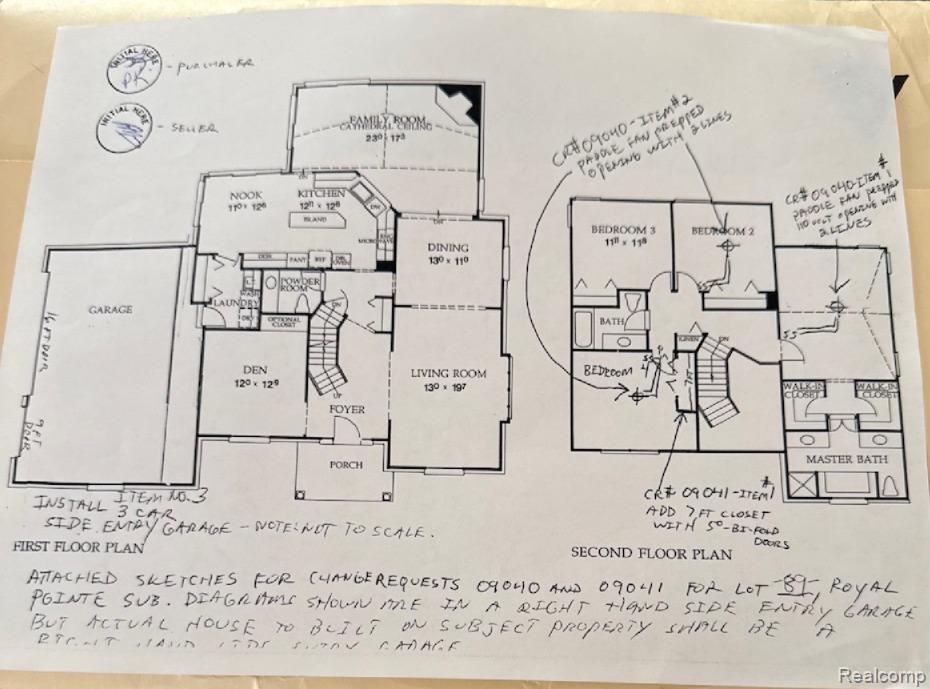 INITIAL HERE
PK
- PURCHASER
INITIAL HERE
- SELLER
FAMILY ROOM
CATHEDRAL CEILING
23⁰ x 17³
NOOK
11⁰ x 12⁶
KITCHEN
12¹¹ x 12⁶
ISLAND
DN
DW
MICRO
DESK
PANT
REF
DBL OVEN
DINING
13⁰ x 11⁰
LAUNDRY
WASH
DRY
POWDER ROOM
OPTIONAL CLOSET
DN
GARAGE
16 FT DOOR
9 FT DOOR
DEN
12⁰ x 12⁹
UP
FOYER
LIVING ROOM
13⁰ x 19⁷
PORCH
INSTALL ITEM NO. 3
3 CAR
SIDE ENTRY GARAGE - NOTE: NOT TO SCALE.
FIRST FLOOR PLAN
CR# 09040-ITEM #2
PADDLE FAN PREPPED
OPENING WITH 2 LINES
CR# 09040-ITEM #1
PADDLE FAN PREPPED
110 VOLT OPENING WITH
2 LINES
BEDROOM 3
11¹¹ x 11⁸
BEDROOM 2
BATH
LINEN
DN
BEDROOM
4
7 FT
SS
WALK-IN CLOSET
WALK-IN CLOSET
MASTER BATH
CR# 09041-ITEM #1
ADD 7 FT CLOSET
WITH 5⁰-BI-FOLD
DOORS
SECOND FLOOR PLAN
ATTACHED SKETCHES FOR CHANGE REQUESTS 09040 AND 09041 FOR LOT 89, ROYAL
POINTE SUB. DIAGRAMS SHOWN ARE IN A RIGHT HAND SIDE ENTRY GARAGE
BUT ACTUAL HOUSE TO BUILT ON SUBJECT PROPERTY SHALL BE A
RIGHT HAND SIDE ENTRY GARAGE
Realcomp